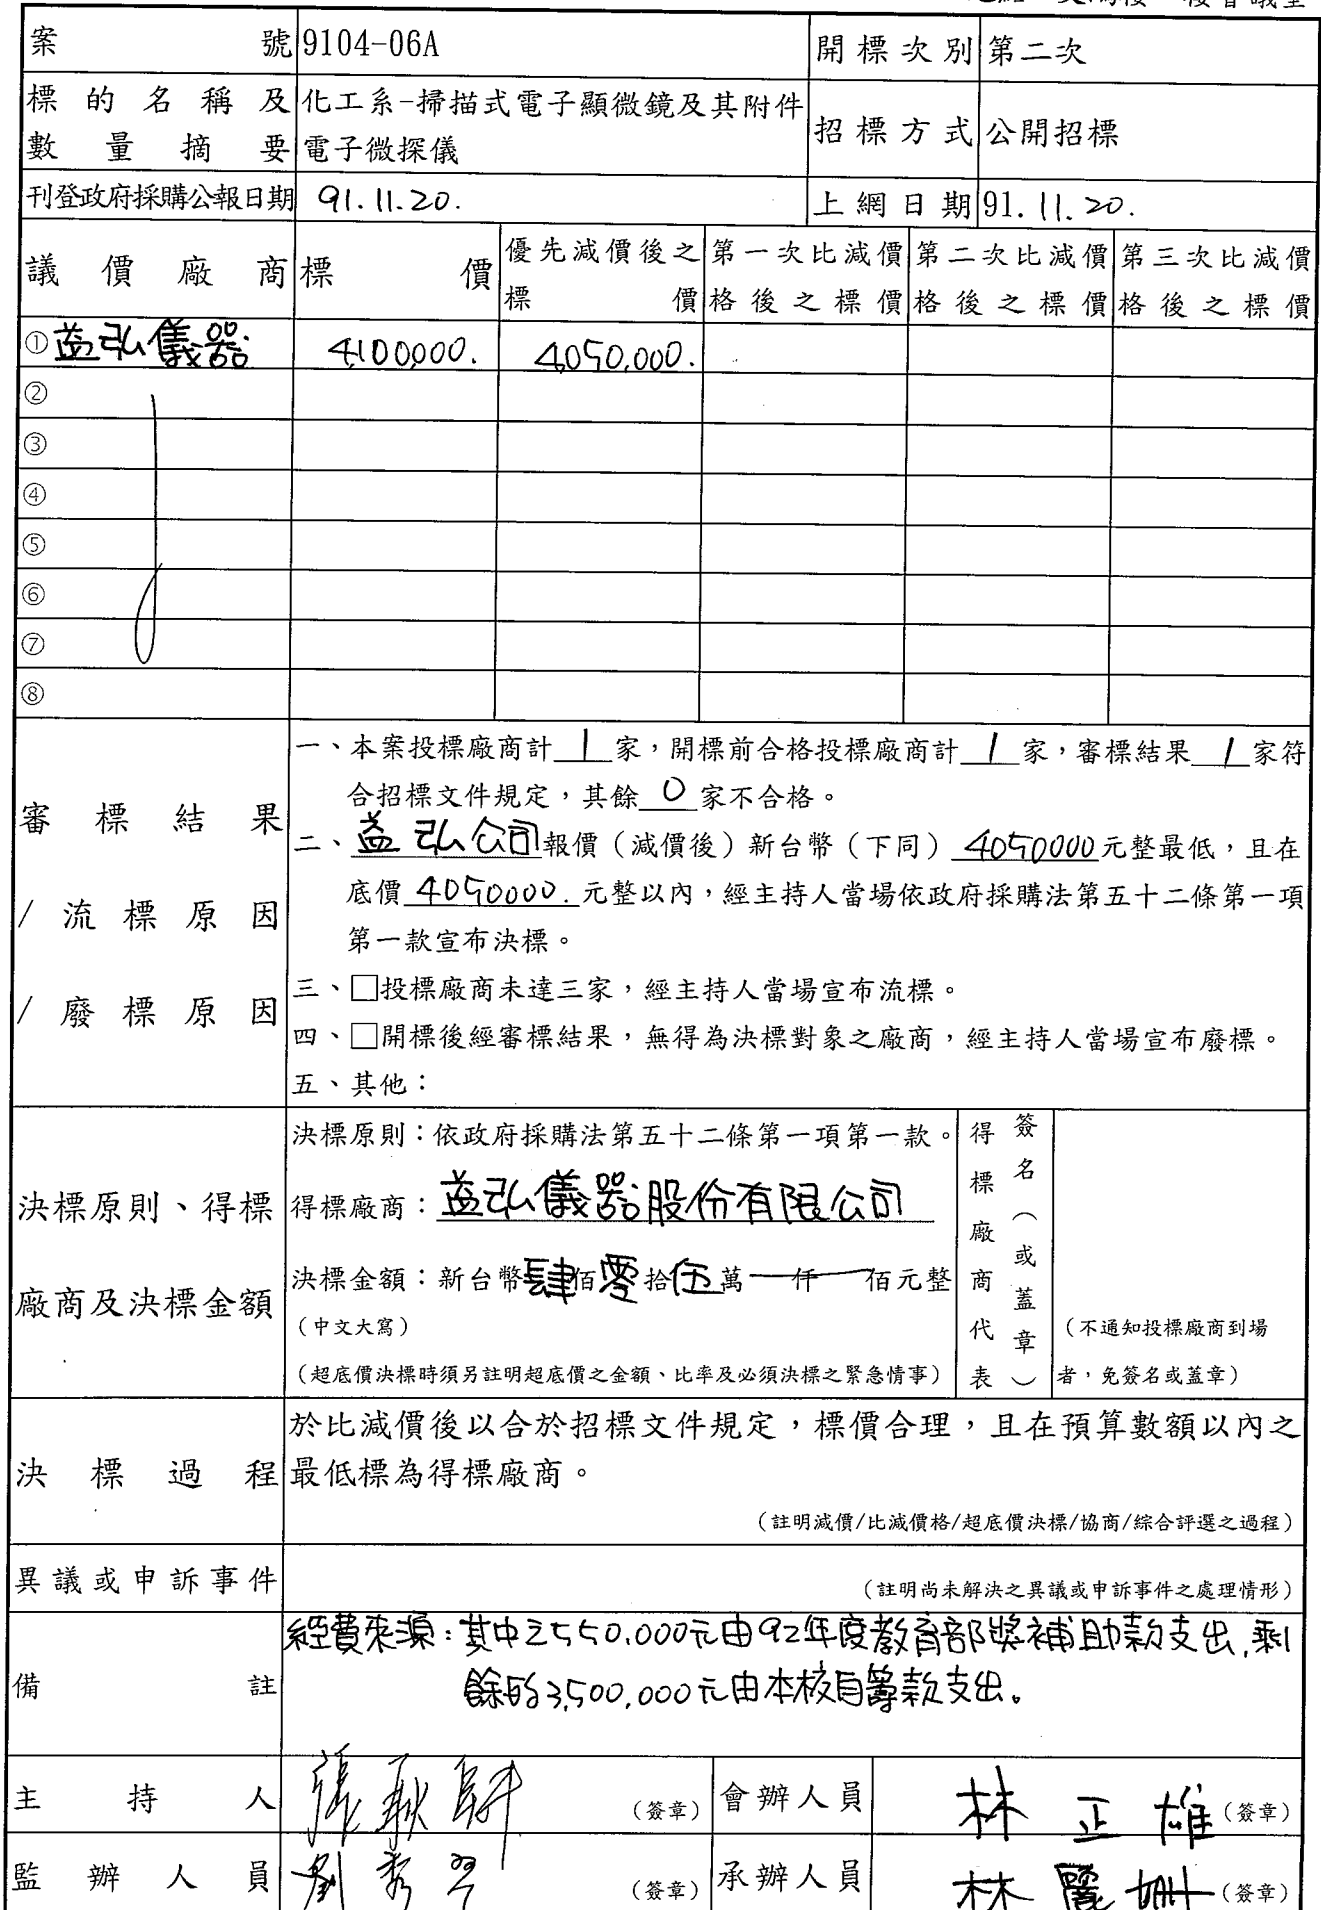 案號 9104-06A 開標次別 第二次
標的名稱及 化工系-掃描式電子顯微鏡及其附件 招標方式 公開招標
數量摘要 電子微探儀
刊登政府採購公報日期 91.11.20. 上網日期 91.11.20.
議價廠商 標價 優先減價後之 第一次比減價 第二次比減價 第三次比減價
標價 格後之標價 格後之標價 格後之標價
① 益弘儀器 4,100,000. 4,050,000.
②
③
④
⑤
⑥
⑦
⑧
審標結果
/流標原因
/廢標原因
一、本案投標廠商計 1 家,開標前合格投標廠商計 1 家,審標結果 1 家符
合招標文件規定,其餘 0 家不合格。
二、益弘公司報價(減價後)新台幣(下同)4050000元整最低,且在
底價 4050000. 元整以內,經主持人當場依政府採購法第五十二條第一項
第一款宣布決標。
三、□投標廠商未達三家,經主持人當場宣布流標。
四、□開標後經審標結果,無得為決標對象之廠商,經主持人當場宣布廢標。
五、其他:
決標原則、得標
廠商及決標金額
決標原則:依政府採購法第五十二條第一項第一款。
得標廠商:益弘儀器股份有限公司
決標金額:新台幣肆佰零拾伍萬一仟一佰元整
(中文大寫)
(超底價決標時須另註明超底價之金額、比率及必須決標之緊急情事)
得標廠商代表
簽名(或蓋章)
(不通知投標廠商到場
者,免簽名或蓋章)
決標過程
於比減價後以合於招標文件規定,標價合理,且在預算數額以內之
最低標為得標廠商。
(註明減價/比減價格/超底價決標/協商/綜合評選之過程)
異議或申訴事件 (註明尚未解決之異議或申訴事件之處理情形)
備註
經費來源:其中之550,000元由92年度教育部獎補助款支出,剩
餘的3,500,000元由本校自籌款支出。
主持人 (簽章) 會辦人員 林正雄 (簽章)
監辦人員 劉秀 (簽章) 承辦人員 林麗姍 (簽章)